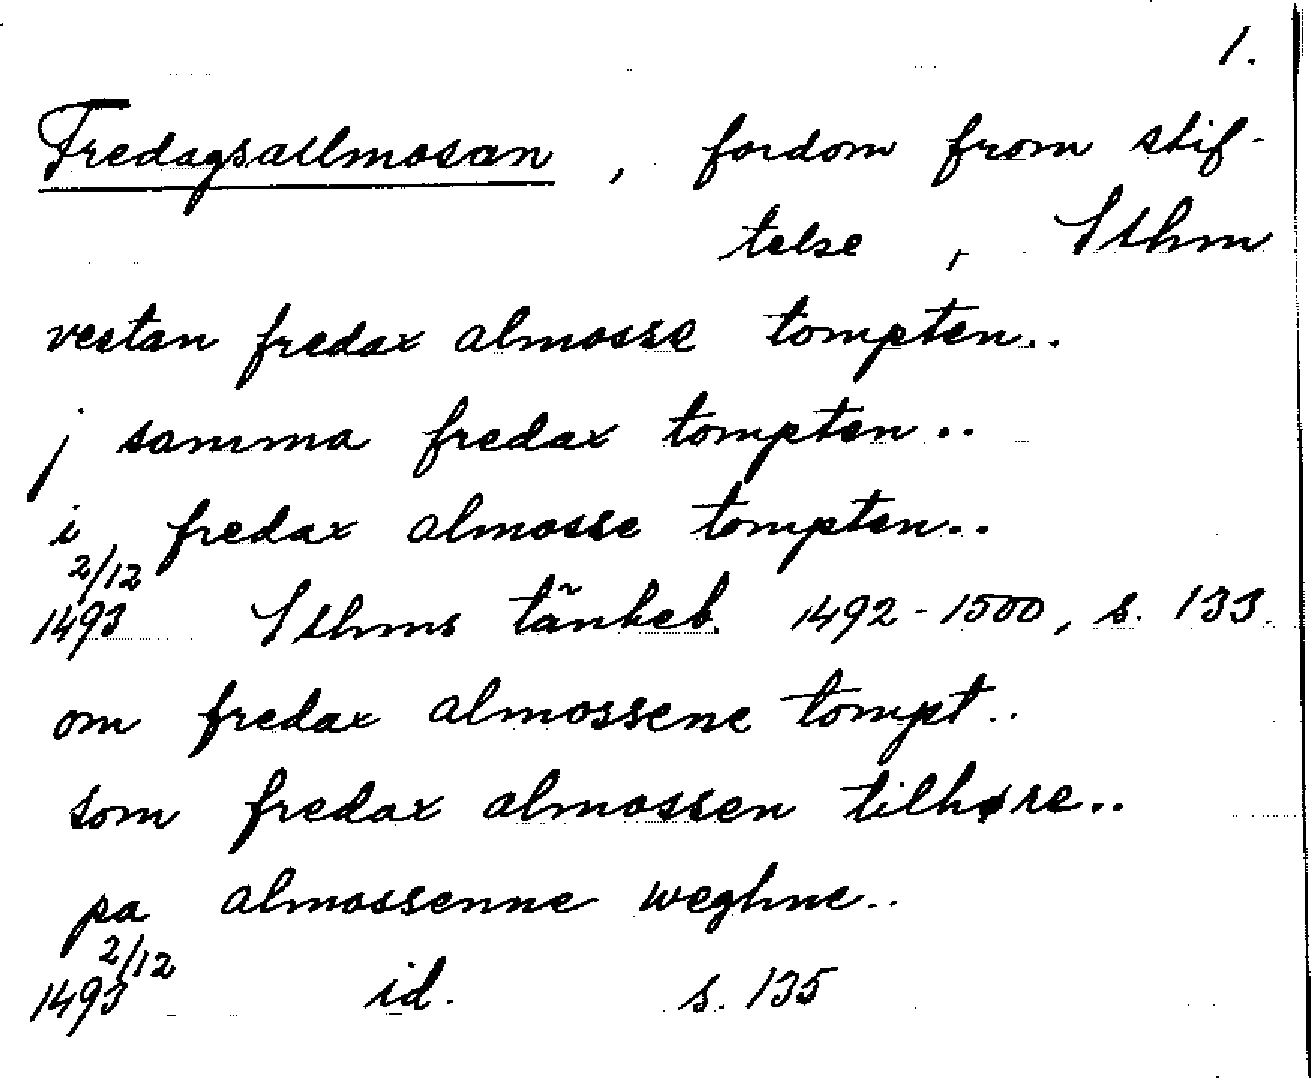 1.
Fredagsallmosan, fordom from stif-
telse, Sthm
vestan fredax almosse tompten..
j samma fredax tompten..
i fredax almosse tompten..
2/12
1493 Sthms tänkeb. 1492-1500, s. 133.
om fredax almossene tompt..
som fredax almossen tilhøre..
pa almossenne weghne..
2/12
1493 id. s. 135